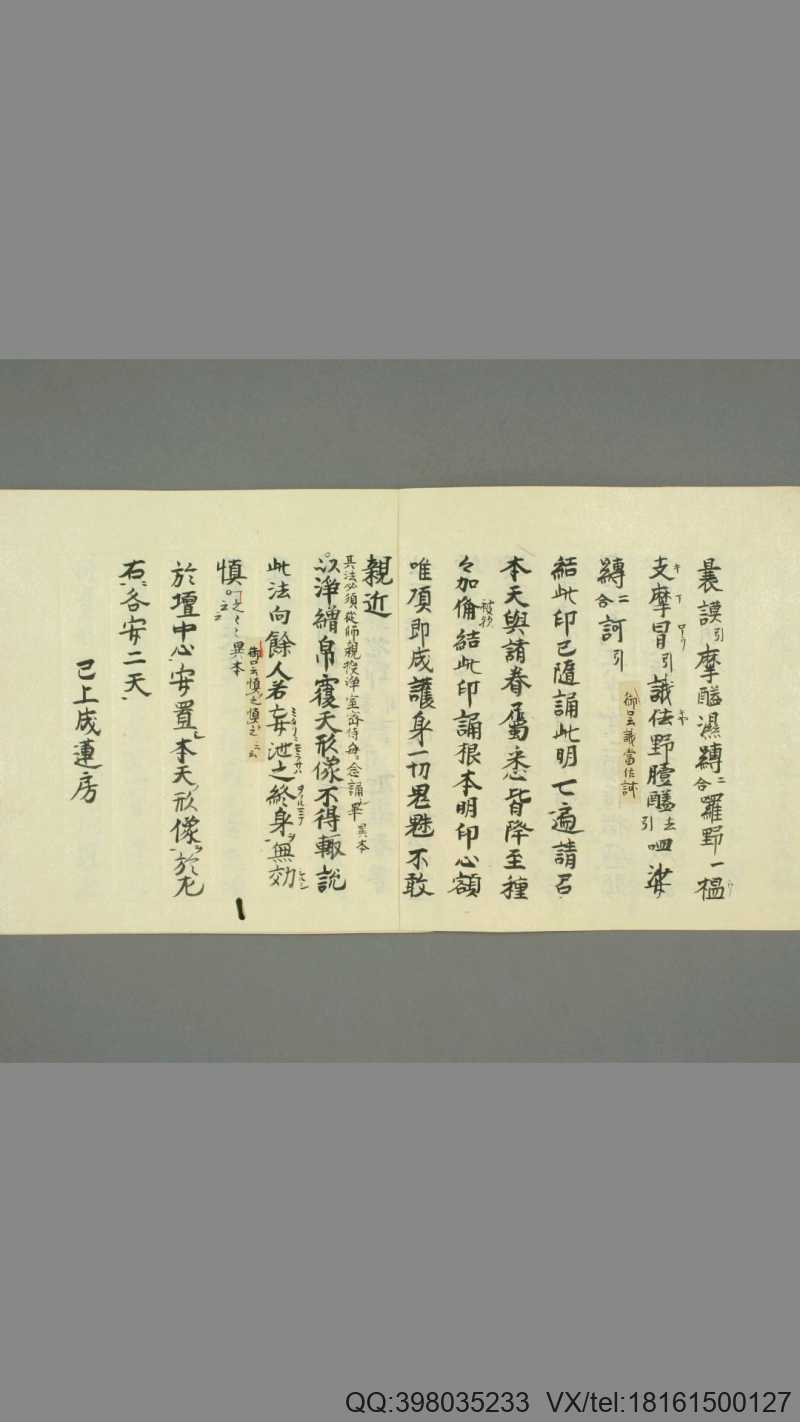 曩謨引摩醯濕縛二合羅野一榅
支摩冒引識佉野醯引去呬娑
縛二合訶引
御口云識當佉訶
結此印已隨誦此明七遍請召
本天與諸眷屬悉皆降至種
々加備結此印誦根本明印心額
被録
唯項即成護身一切鬼魅不敢
親近
其法必須從師親授淨室齊待 念誦畢 異本
以淨繒帛覆天形像不得輙説
此法向餘人若妄泄之終身無効
御口云慎之慎之云云
慎之々々 異本
於壇中心安置本天形像於左
右各安二天
已上成蓮房
QQ:398035233 VX/tel:18161500127